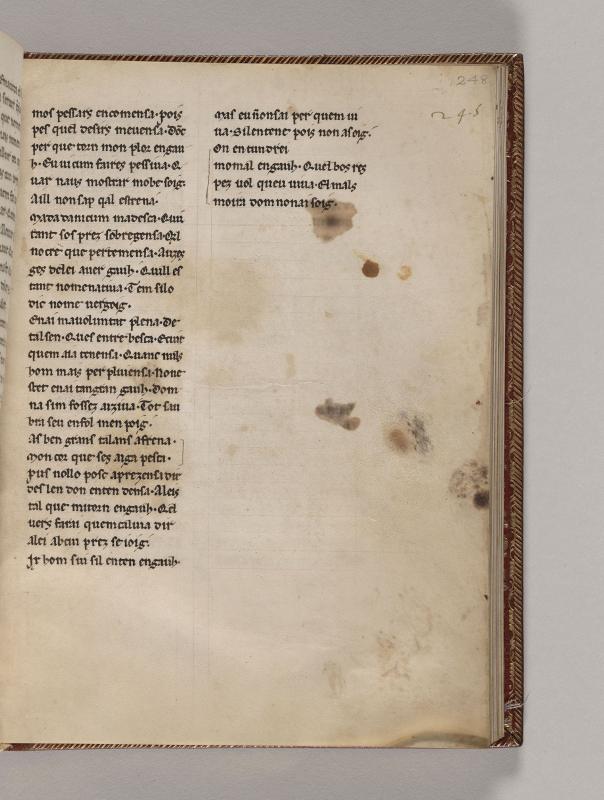 248
mos pessars encomensa·pois
pes quel desirs meuensa·Dōc
per que torn mon plor engau
h·Eu uiuim faires pessiua·Q
uar naus mostrar mobt soig·
Aill non sap qal estrena·
tant sos prez sobregensa·Qel
no cre que pertemensa·Auzes
ges delei auer gauh·Quill es
tant nomenatiua·Tem silo
dic nome uergoig·
Enai mauoluntat plena·De
tal sen·Ques entre besca·
hom mais per plivensa·None
stet enai tangran gauh·Dom
na sim fossez aiziua·Tot sau
bra seu enfol men poig·
As ben grans talans afrena·
Mon cor que ses aiga pesca·
Pus nollo posc aprezensa dir
des len don enten densa·Aleis
tal que mitorn engauh·Qel
uers farai quem caliua dir
alei abem prez se ioig·
Ir hom sui sil enten engauh·
Mas eu nonsai per quem ui
ua·Silentenc pois non ai soig·
On en tundrei
momal engauh·Quel bos reys
pez uol queu uiua·El mals
moira dom non ai soig·